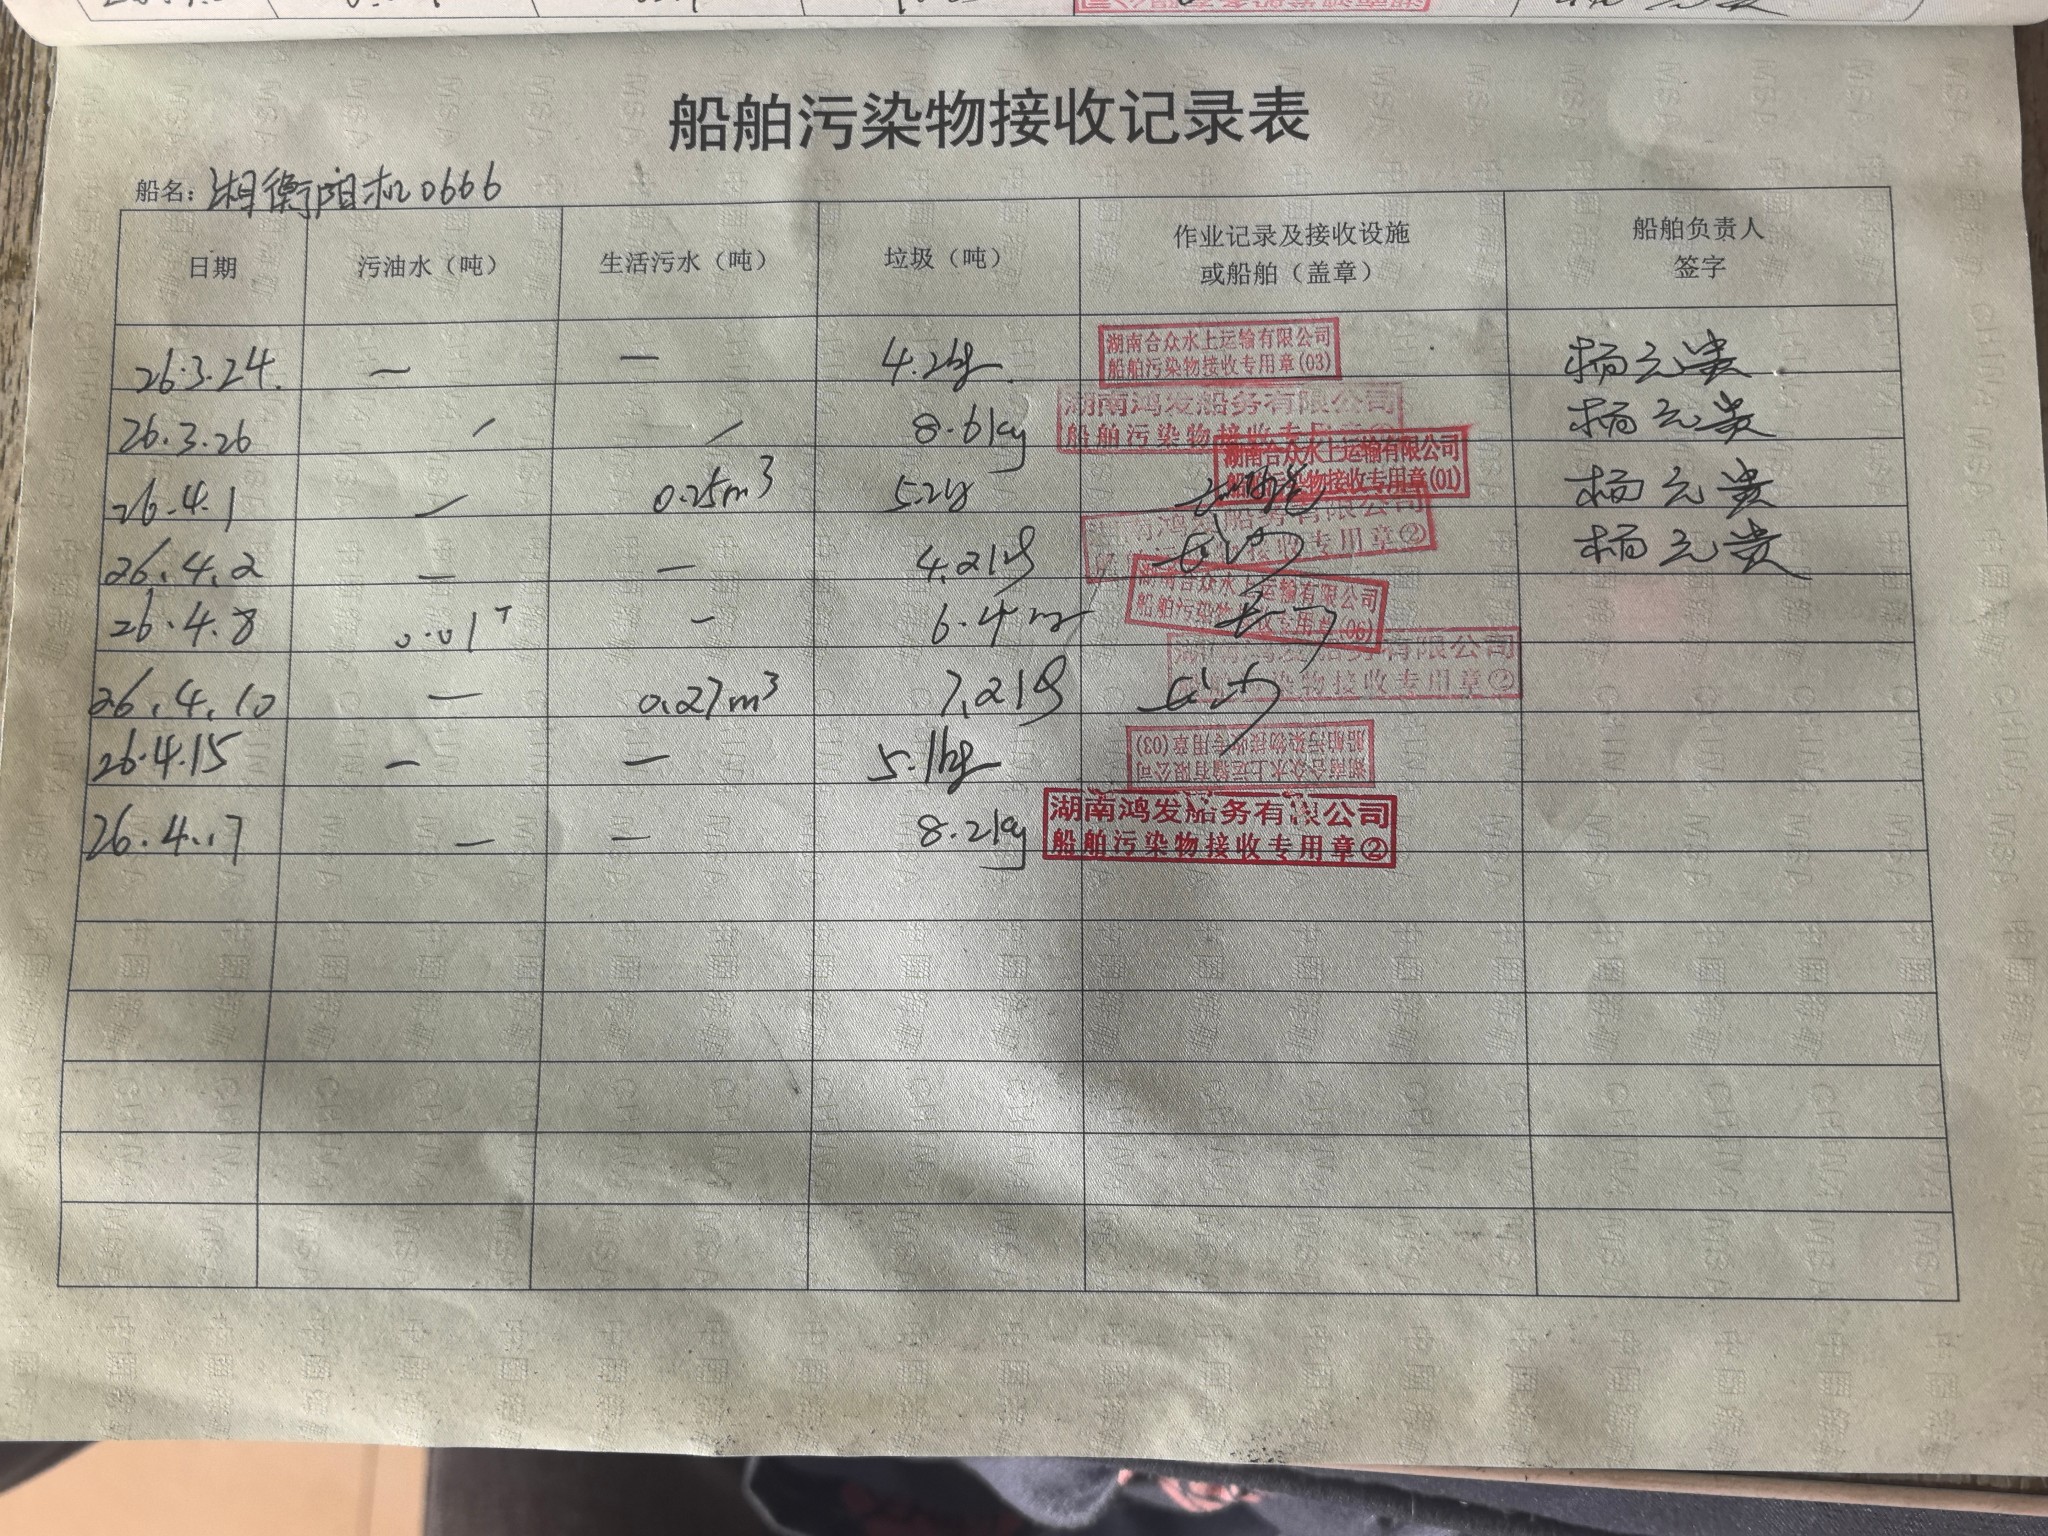 船舶污染物接收记录表
船名：湘衡阳机0666
日期 污油水（吨） 生活污水（吨） 垃圾（吨） 作业记录及接收设施或船舶（盖章） 船舶负责人签字
26.3.24. — — 4.2kg 湖南合众水上运输有限公司 船舶污染物接收专用章(03) 杨元贵
26.3.26 / / 8.6kg 湖南鸿发船务有限公司 船舶污染物接收专用章② 杨元贵
26.4.1 / 0.25m³ 5.2kg 湖南合众水上运输有限公司 船舶污染物接收专用章(01) 杨元贵
26.4.2 — — 4.21kg 湖南鸿发船务有限公司 船舶污染物接收专用章② 杨元贵
26.4.8 0.01T — 6.4kg 湖南合众水上运输有限公司 船舶污染物接收专用章(06)
26.4.10 — 0.27m³ 7.21kg 湖南鸿发船务有限公司 船舶污染物接收专用章②
26.4.15 — — 5.1kg 湖南合众水上运输有限公司 船舶污染物接收专用章(03)
26.4.17 — — 8.2kg 湖南鸿发船务有限公司 船舶污染物接收专用章②